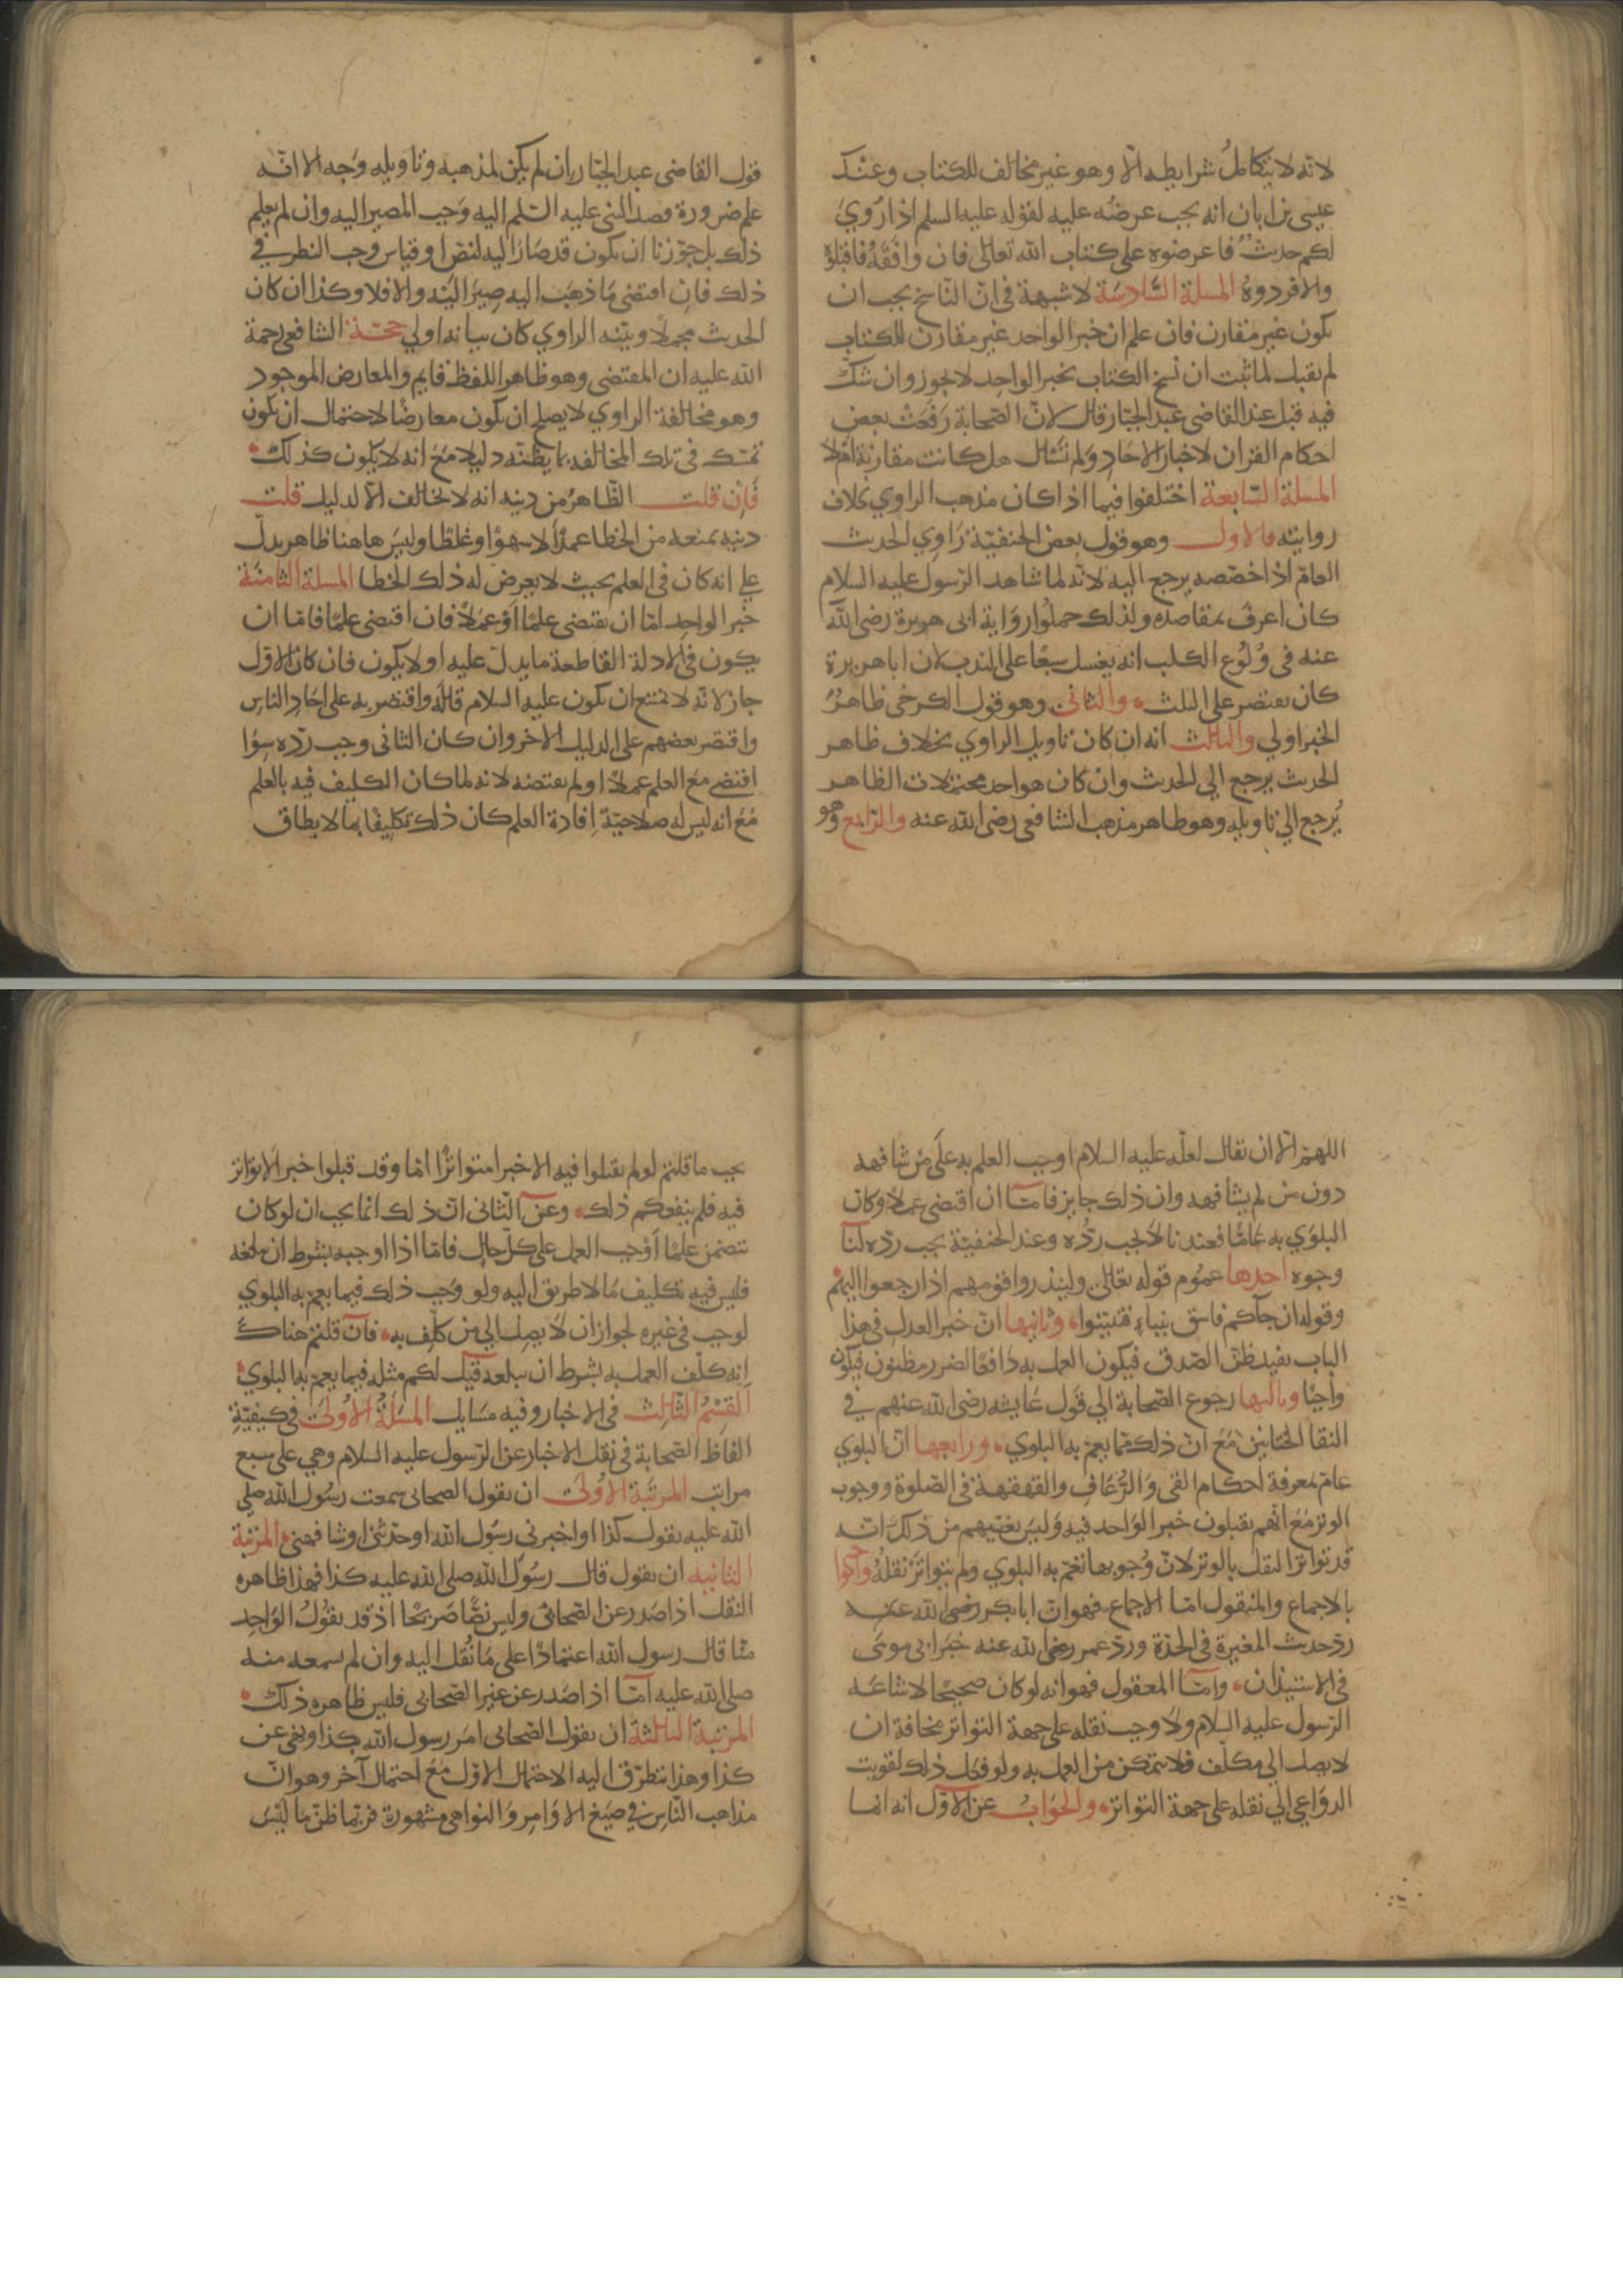 لانه لا يتكامل شرايطه الا وهو غير مخالف للكتاب وعند
عيسى بن ابان انه يجب عرضه عليه لقوله عليه السلم اذا روي
لكم حديث فاعرضوه على كتاب الله تعالى فان وافقه فاقبلوه
والا فردوه المسلة السادسة لا شبهة في ان الناسخ يجب ان
يكون غير مقارن فان علم ان خبر الواحد غير مقارن للكتاب
لم يقبل لما ثبت ان نسخ الكتاب بخبر الواحد لا يجوز وان شك
فيه قبل عند القاضي عبد الجبار قال لان الصحابة رفعت بعض
احكام القران لاخبار الاحاد ولم تسال هل كانت مقارنة ام لا
المسلة السابعة اختلفوا فيما اذا كان مذهب الراوي بخلاف
روايته فالاول وهو قول بعض الحنفية راوي الحديث
العام اذا خصصه يرجع اليه لانه لما شاهد الرسول عليه السلام
كان اعرف بمقاصده ولذلك حملوا رواية ابى هريرة رضي الله
عنه في ولوغ الكلب انه يغسل سبعا على الندب لان ابا هريرة
كان يقتصر على الثلث والثاني وهو قول الكرخي ظاهر
الخبر اولي والثالث انه ان كان تاويل الراوي بخلاف ظاهر
الحديث يرجع الي الحديث وان كان هو احد محتملات الظاهر
يرجع الي تاويله وهو ظاهر مذهب الشافعي رضي الله عنه والرابع وهو
قول القاضي عبد الجبار ان لم يكن لمذهبه وتاويله وجه الا انه
علم ضرورة قصد النبي عليه السلم اليه وجب المصير اليه وان لم يعلم
ذلك بل جوزنا ان يكون قد صار اليه لنص او قياس وجب النظر في
ذلك فان اقتضى ما ذهب اليه صير اليه والا فلا وكذا ان كان
الحديث مجملا وبينه الراوي كان بيانه اولي حجة الشافعي رحمة
الله عليه ان المقتضى وهو ظاهر اللفظ قايم والمعارض الموجود
وهو مخالفة الراوي لا يصلح ان يكون معارضا لاحتمال ان يكون
تمسك في تلك المخالفه بما يظنه دليلا مع انه لا يكون كذلك
فان قلت الظاهر من دينه انه لا يخالف الا لدليل قلت
دينه يمنعه من الخطا عمدا لا سهوا او غلطا وليس هاهنا ظاهر يدل
علي انه كان في العلم بحيث لا يعرض له ذلك الخطا المسلة الثامنة
خبر الواحد اما ان يقتضى علما او عملا فان اقتضى علما فاما ان
يكون في الادلة القاطعة ما يدل عليه او لا يكون فان كان الاول
جاز لانه لا يمتنع ان يكون عليه السلام قاله واقتصر به على احاد الناس
واقتصر بعضهم على الدليل الاخر وان كان الثاني وجب رده سوا
اقتضى مع العلم عملا او لم يقتضه لانه لما كان التكليف فيه بالعلم
مع انه ليس له صلاحية افادة العلم كان ذلك تكليفا بما لا يطاق
اللهم الا ان يقال لعله عليه السلام اوجب العلم به على من شافهه
دون من لم يشافهه وان ذلك جايز فاما ان اقتضى عملا وكان
البلوي به عاما فعندنا لا يجب رده وعند الحنفية يجب رده لنا
وجوه احدها عموم قوله تعالى ولينذروا قومهم اذا رجعوا اليهم
وقوله ان جاكم فاسق بنباء فتبينوا وثانيها ان خبر العدل في هذا
الباب يفيد ظن الصدق فيكون العمل به دافعا لضرر مظنون فيكون
واجبا وثالثها رجوع الصحابة الي قول عايشه رضي الله عنهم في
التقا الختانين مع ان ذلك مما يعم به البلوي ورابعها ان البلوي
عام بمعرفة احكام القي والرعاف والقهقهة في الصلوة ووجوب
الوتر مع انهم يقبلون خبر الواحد فيه وليس يغنيهم من ذلك انه
قد تواتر النقل بالوتر لان وجوبها تعم به البلوي ولم يتواتر نقله واحتجوا
بالاجماع والمعقول اما الاجماع فهو ان ابا بكر رضي الله عنه
رد حديث المغيرة في الجدة ورد عمر رضي الله عنه خبر ابى موسى
في الاستيذان واما المعقول فهو انه لو كان صحيحا لاشاعه
الرسول عليه السلام ولاوجب نقله على جهة التواتر مخافة ان
لا يصل الي مكلف فلا يتمكن من العمل به ولو فعل ذلك لقويت
الدواعي الي نقله على جهة التواتر والجواب عن الاول انه انما
يجب ما قلتم لو لم يقبلوا فيه الا خبرا متواترا اما وقد قبلوا خبرا لا تواتر
فيه فلم ينفعكم ذلك وعن الثاني ان ذلك انما يجب ان لو كان
يتضمن علما او وجب العمل على كل حال فاما اذا اوجبه بشرط ان يبلغه
فليس فيه تكليف ما لا طريق اليه ولو وجب ذلك فيما يعم به البلوي
لوجب في غيره لجواز ان لا يصل الي من كلف به فان قلتم هناك
انه كلف العمل به بشرط ان يبلغه قيل لكم مثله فيما يعم به البلوي
القسم الثالث في الاخبار وفيه مسايل المسلة الاولى في كيفية
الفاظ الصحابة في نقل الاخبار عن الرسول عليه السلام وهي على سبع
مراتب المرتبة الاولى ان يقول الصحابي سمعت رسول الله صلي
الله عليه يقول كذا او اخبرني رسول الله او حدثني او شافهني المرتبة
الثانيه ان يقول قال رسول الله صلى الله عليه كذا فهذا ظاهره
النقل اذا صدر عن الصحابي وليس نصا صريحا اذ قد يقول الواحد
منا قال رسول الله اعتمادا على ما نقل اليه وان لم يسمعه منه
صلى الله عليه اما اذا صدر عن غير الصحابي فليس ظاهره ذلك
المرتبة الثالثة ان يقول الصحابي امر رسول الله بكذا ونهى عن
كذا وهذا يتطرق اليه الاحتمال الاول مع احتمال آخر وهو ان
مذاهب الناس في صيغ الاوامر والنواهي مشهورة فربما ظن ما ليس